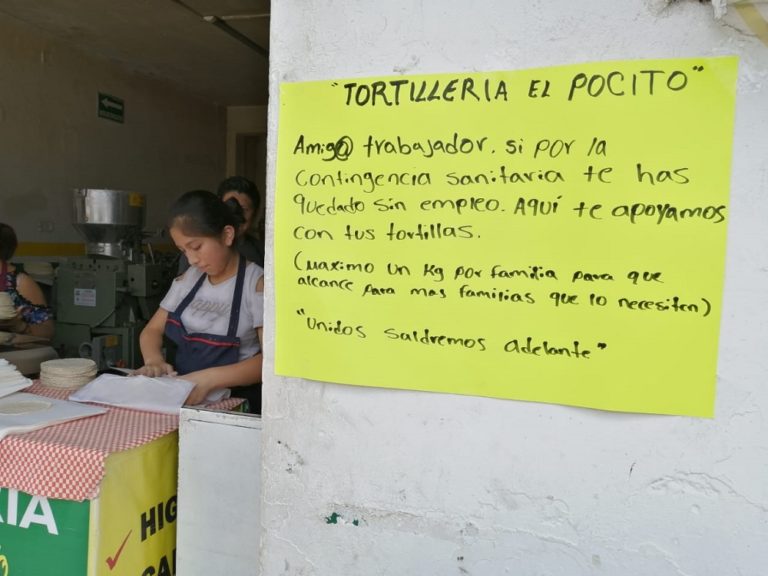 "TORTILLERIA EL POCITO"
Amig@ trabajador. si por la
contingencia sanitaria te has
quedado sin empleo. AQUÍ te apoyamos
con tus tortillas.
(Maximo un Kg por familia para que
alcance para mas familias que lo necesiten)
"Unidos saldremos adelante"
RIA
HIG